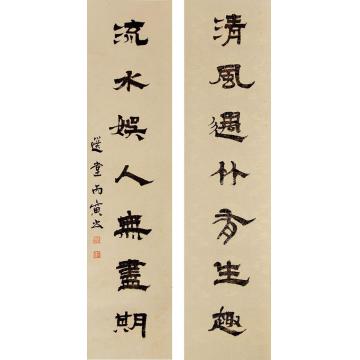 清風遇竹有生趣
流水娛人無盡期
選堂丙寅書